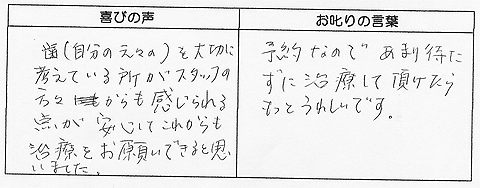 喜びの声
歯(自分の元々の)を大切に
考えている所がスタッフの
方々からも感じられる
点が安心してこれからも
治療をお願いできると思
いました。
お叱りの言葉
予約なので あまり待た
ずに治療して頂けたら
もっとうれしいです。